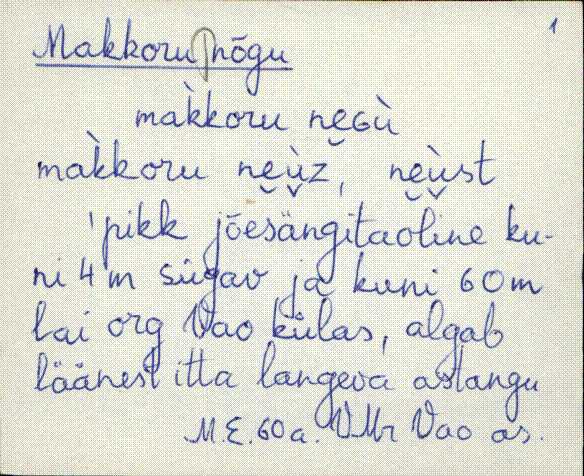 1
Makkoru nõgu
mak̀koru ne̮Gù
mak̀koru ne̮ù̬z, ne̮ù̬st
'pikk jõesängitaoline ku-
ni 4 m sügav ja kuni 60 m
lai org Vao külas, algab
läänest itta langeva astangu
M.E. 60 a. VMr Vao as.